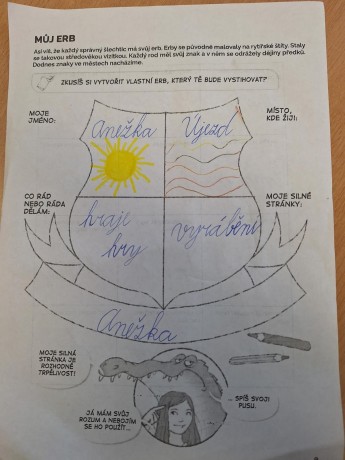 MŮJ ERB
Asi víš, že každý správný šlechtic má svůj erb. Erby se původně malovaly na rytířské štíty. Staly
se takovou středověkou vizitkou. Každý rod měl svůj znak a v něm se odrážely dějiny předků.
Dodnes znaky ve městech nacházíme.
ZKUSÍŠ SI VYTVOŘIT VLASTNÍ ERB, KTERÝ TĚ BUDE VYSTIHOVAT?
MOJE
JMÉNO:
Anežka
Újezd
MÍSTO,
KDE ŽIJI:
CO RÁD
NEBO RÁDA
DĚLÁM:
hraji
hry
vyrábění
MOJE SILNÉ
STRÁNKY:
Anežka
MOJE SILNÁ
STRÁNKA JE
ROZHODNĚ
TRPĚLIVOST!
... SPÍŠ SVOJI
PUSU.
JÁ MÁM SVŮJ
ROZUM A NEBOJÍM
SE HO POUŽÍT...